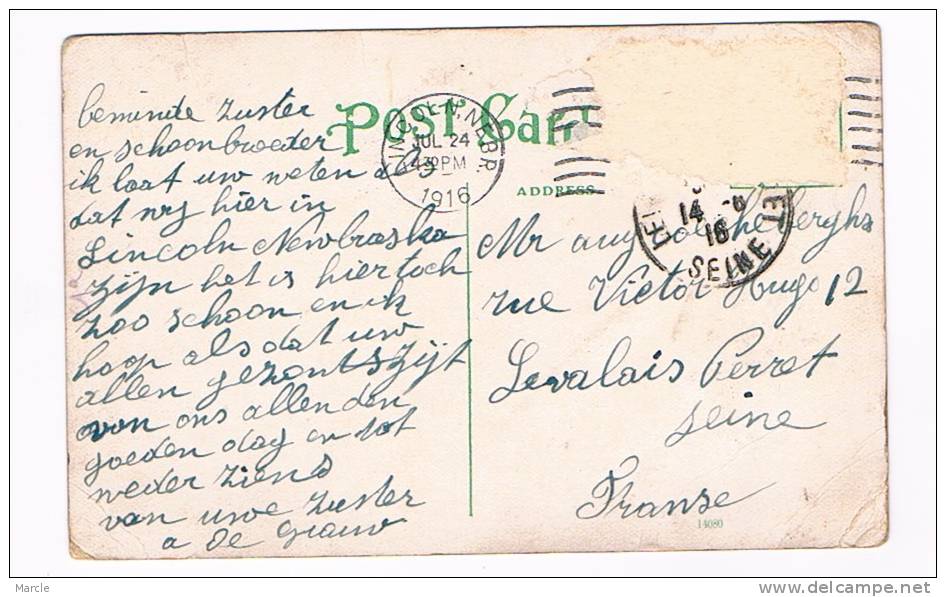 beminde zuster
en schoonbroeder
ik laat uw weten
dat wij hier in
Lincoln Newbraska
zijn het is hier toch
zoo schoon en ik
hoop als dat uw
allen gezont zijt
van ons allen den
goeden dag en tot
weder ziens
van uwe zuster
a de Grauw
POST CARD
ADDRESS
LINCOLN, NEBR.
JUL 24
4 30 PM
1916
14 - 8
16
SEINE
Mr aug
rue Victor Hugo 12
Levalais Perret
seine
Franse
14080
Marcle
http://www.delcampe.net